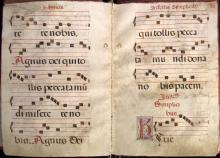 te te nobis.
Agnus dei qui to
llis peccata mu
di misere te no
bis. Agnus Dei
qui tollis pecca
ta mu ndi dona
no bis pacem.
rie